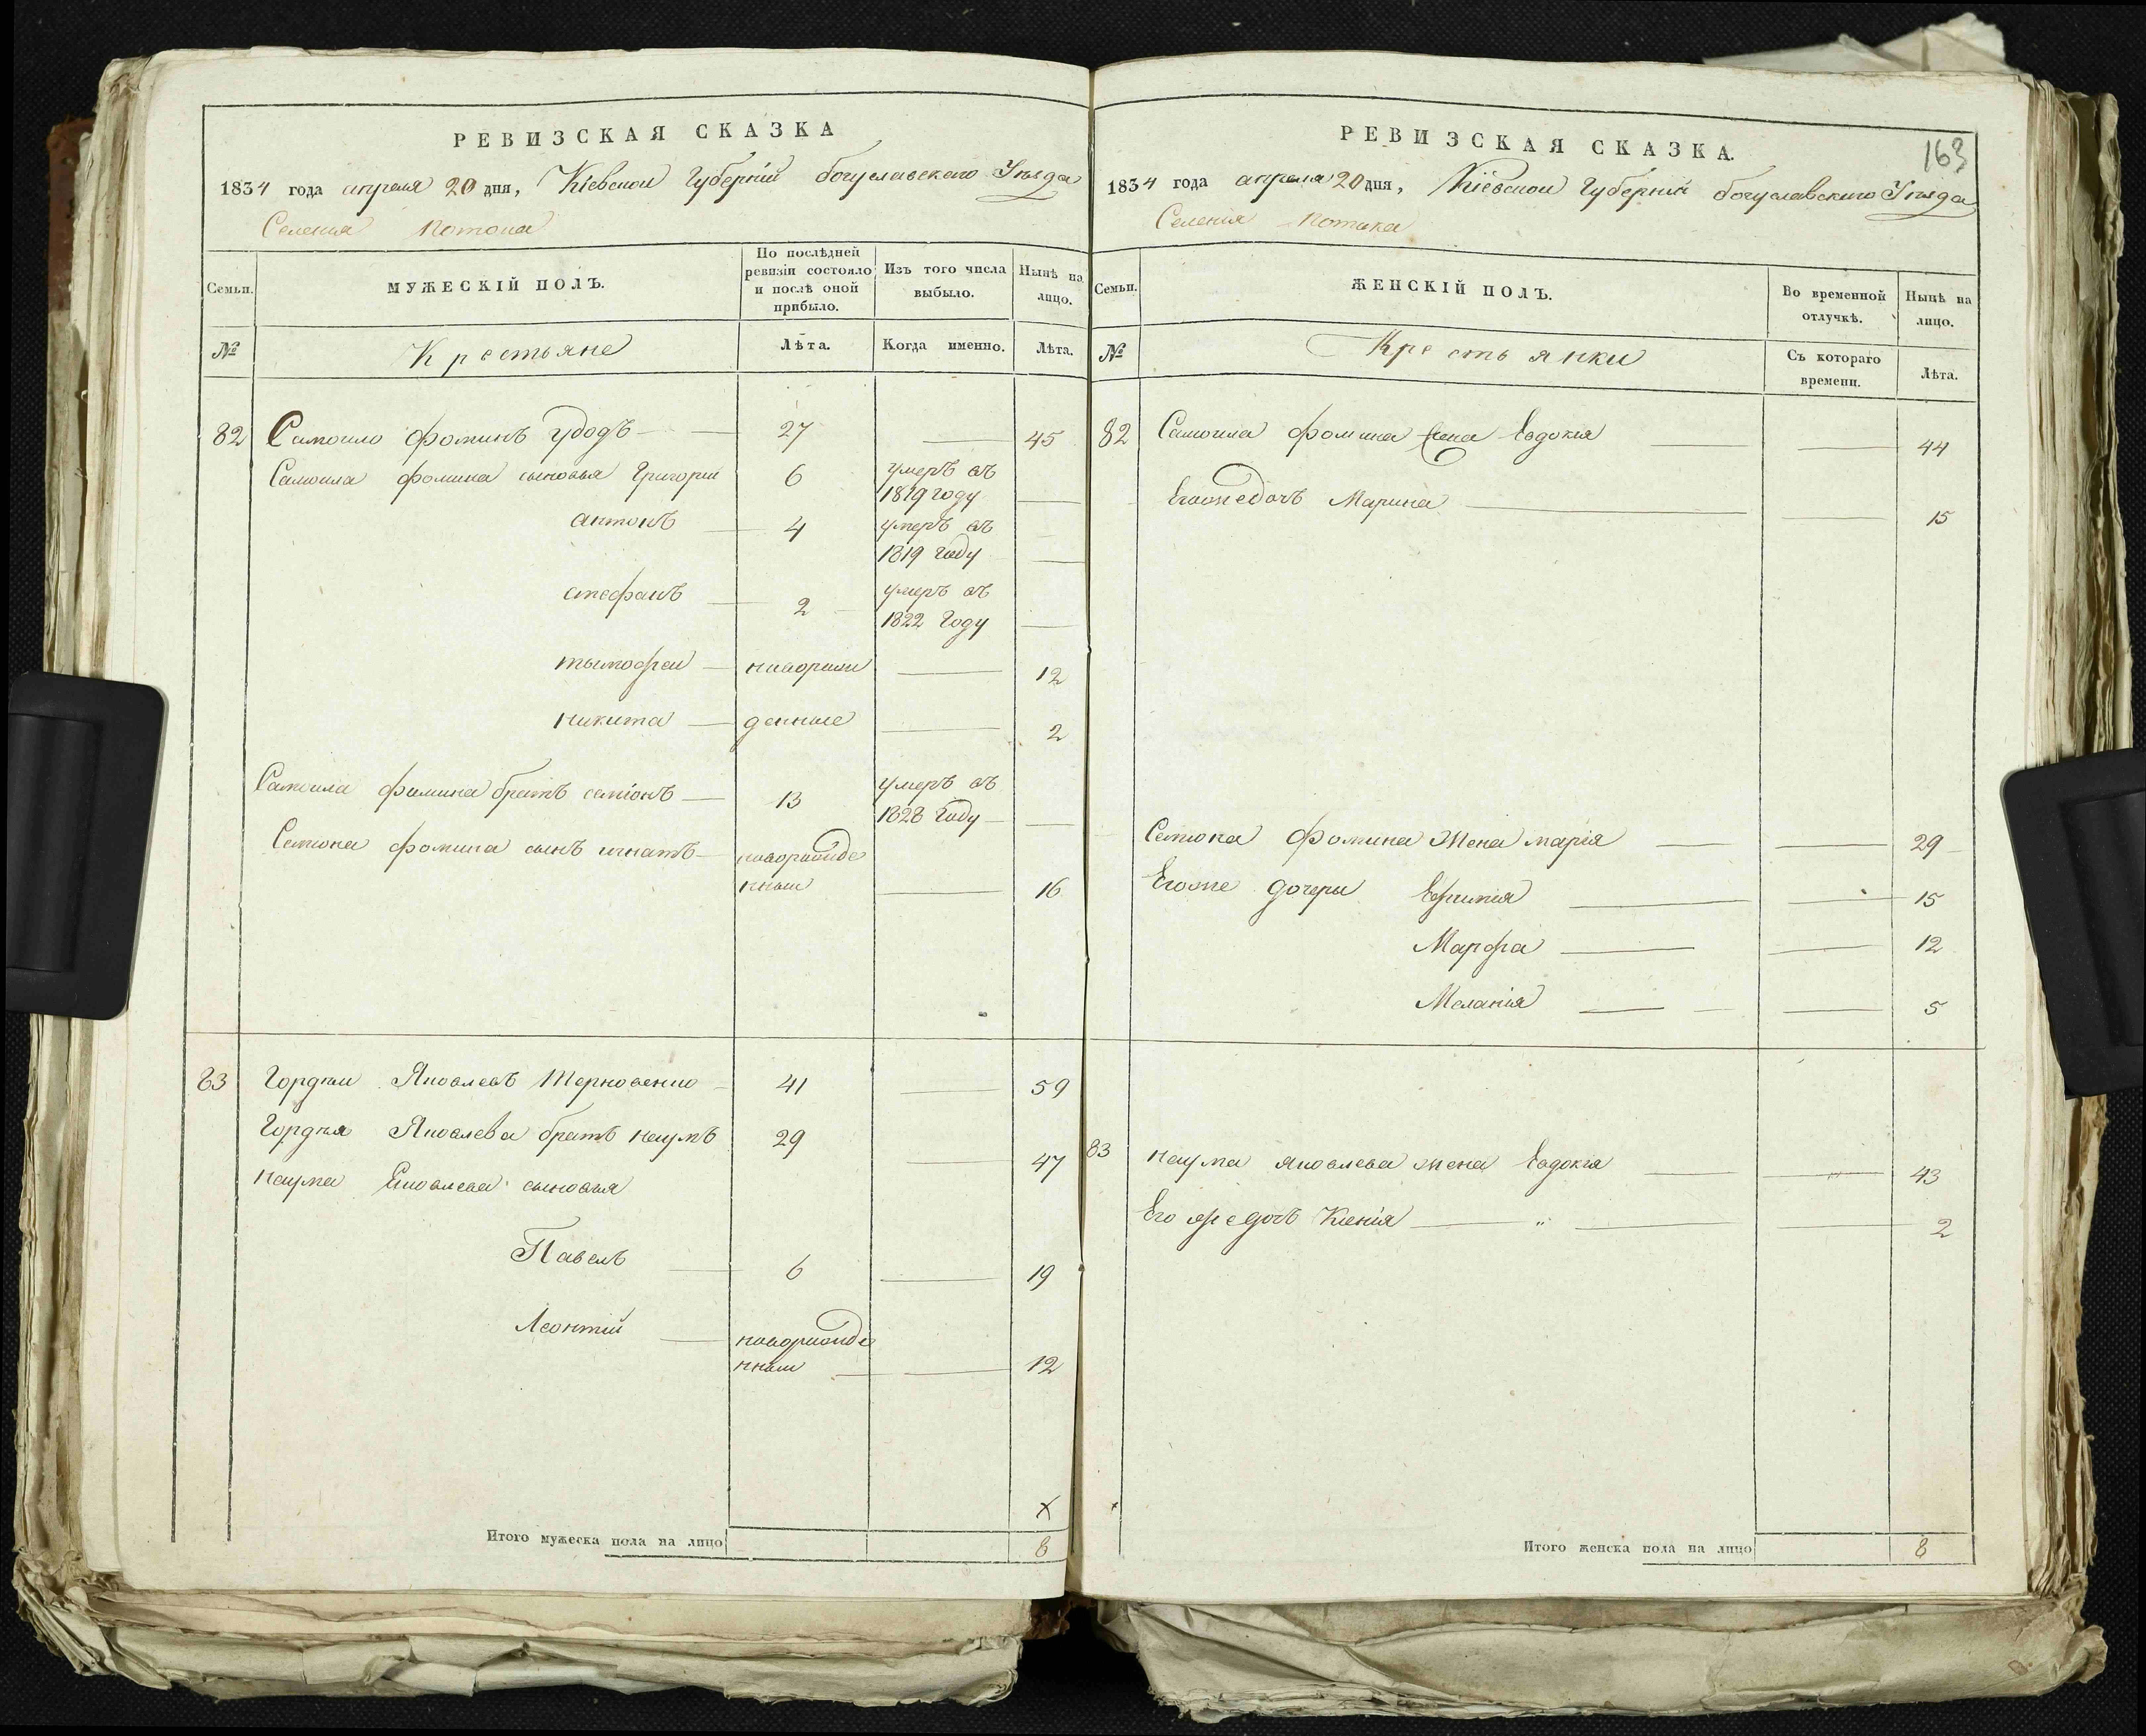 РЕВИЗСКАЯ СКАЗКА
1834 года апреля 20 дня, Кіевской Губерніи богуславскаго Уѣзда
Селенія Потока
Семьи.
МУЖЕСКІЙ ПОЛЪ.
По послѣдней ревизіи состояло и послѣ оной прибыло.
Изъ того числа выбыло.
Нынѣ на лицо.
№
Крестьяне
Лѣта.
Когда именно.
Лѣта.
82 Самоило фоминъ удодъ 27 — 45
Самоила фомина сыновья Григорій 6 умеръ въ
1819 году —
антонъ 4 умеръ въ
1819 году —
стефанъ 2 умеръ въ
1822 году —
тымофей новорож — 12
никита денные — 2
Самоила фомина братъ семіонъ 13 умеръ въ
1828 году —
Семіона фомина сынъ игнатъ новорожде
нный — 16
83 Гордѣй Яковлевъ Терновенко 41 — 59
Гордѣя Яковлева братъ наумъ 29 — 47
наума Яковлева сыновья
Павелъ 6 — 19
Леонтій новорожде
нный — 12
х
Итого мужеска пола на лицо 8
РЕВИЗСКАЯ СКАЗКА.
163
1834 года апреля 20 дня, Кіевской Губерніи богуславскаго Уѣзда
Селенія Потока
Семьи.
ЖЕНСКІЙ ПОЛЪ.
Во временной отлучкѣ.
Нынѣ на лицо.
№
Крестьянки
Съ котораго времени.
Лѣта.
82 Самоила фомина жена Евдокія — 44
Егоже дочь Марина — 15
Семіона фомина жена марія — 29
Егоже дочери Ефимія — 15
Марфа — 12
Меланія — 5
83 наума яковлева жена Евдокія — 43
Его же дочь Ксенія — 2
Итого женска пола на лицо 8